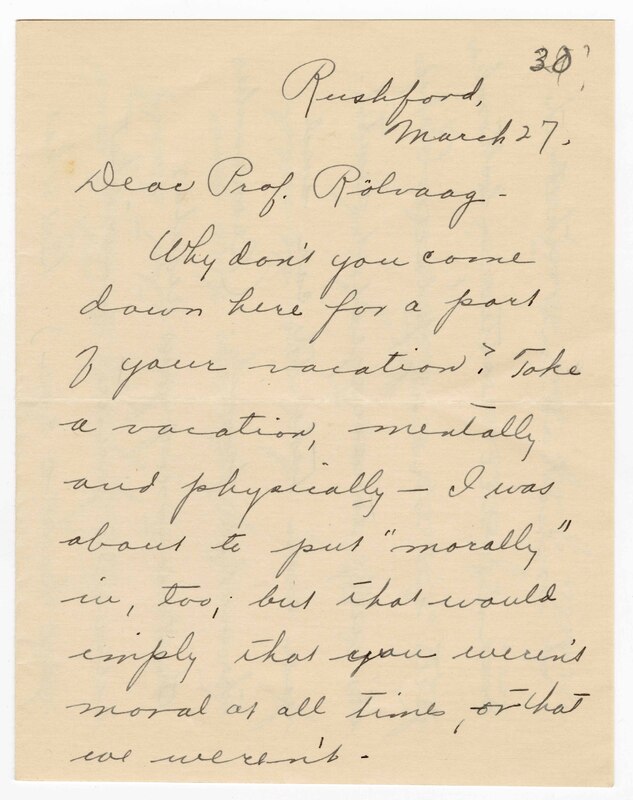 30?
Rushford,
March 27.
Dear Prof. Rölvaag -
Why don't you come
down here for a part
of your vacation? Take
a vacation, mentally
and physically — I was
about to put "morally"
in, too; but that would
imply that you weren't
moral at all times, or that
we weren't -